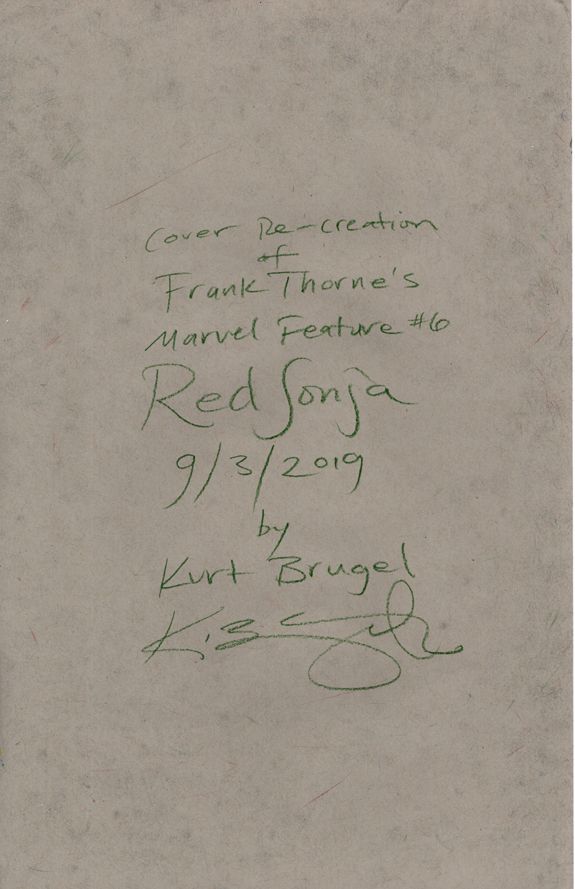 Cover Re-creation
of
Frank Thorne's
Marvel Feature #6
Red Sonja
9/3/2019
by
Kurt Brugel
K.B